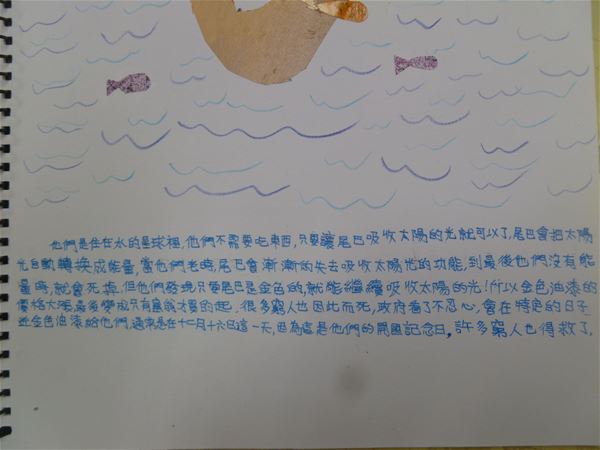 他們是住在水的星球裡,他們不需要吃東西,只要讓尾巴吸收太陽的光就可以了,尾巴會把太陽
光自動轉換成能量,當他們老時,尾巴會漸漸的失去吸收太陽光的功能,到最後他們沒有能
量時,就會死掉.但他們發現只要尾巴是金色的,就能繼續吸收太陽的光!所以金色油漆的
價格大漲,最後變成只有最有錢買的起,很多窮人也因此而死,政府看了不忍心,會在特定的日子
送金色油漆給他們,通常是在十二月十六日這一天,因為這是他們的開國記念日,許多窮人也得救了,